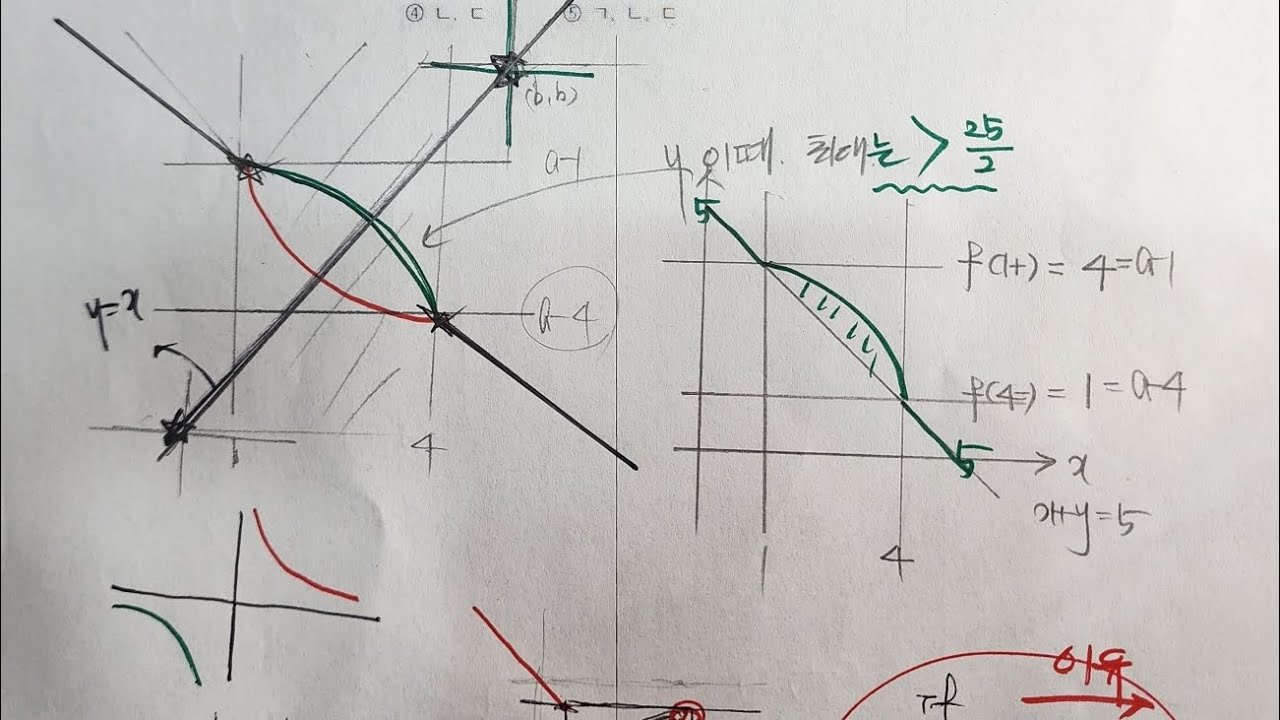 ④ ㄴ, ㄷ ⑤ ㄱ, ㄴ, ㄷ
(b, b)
a-1
y 이때. 최대는 > 25/2
5
f(1+) = 4 = a-1
y=x
a-4
f(4-) = 1 = a-4
5
x
x+y=5
1
4
1
4
이유